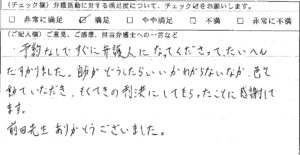 (チェック欄) 弁護活動に対する満足度について、チェック☑をお願いします。
□ 非常に満足 ☑ 満足 □ やや満足 □ 不満 □ 非常に不満
(ご記入欄) ご意見、ご感想、担当弁護士への一言など
予約なしですぐに弁護人になってくださって、たいへん
たすかりました。 がどうしたらいいかわからないなか、色々
動いていただき、もくてきの判決にしてもらったことに感謝して
ます。
前田先生 ありがとうございました。